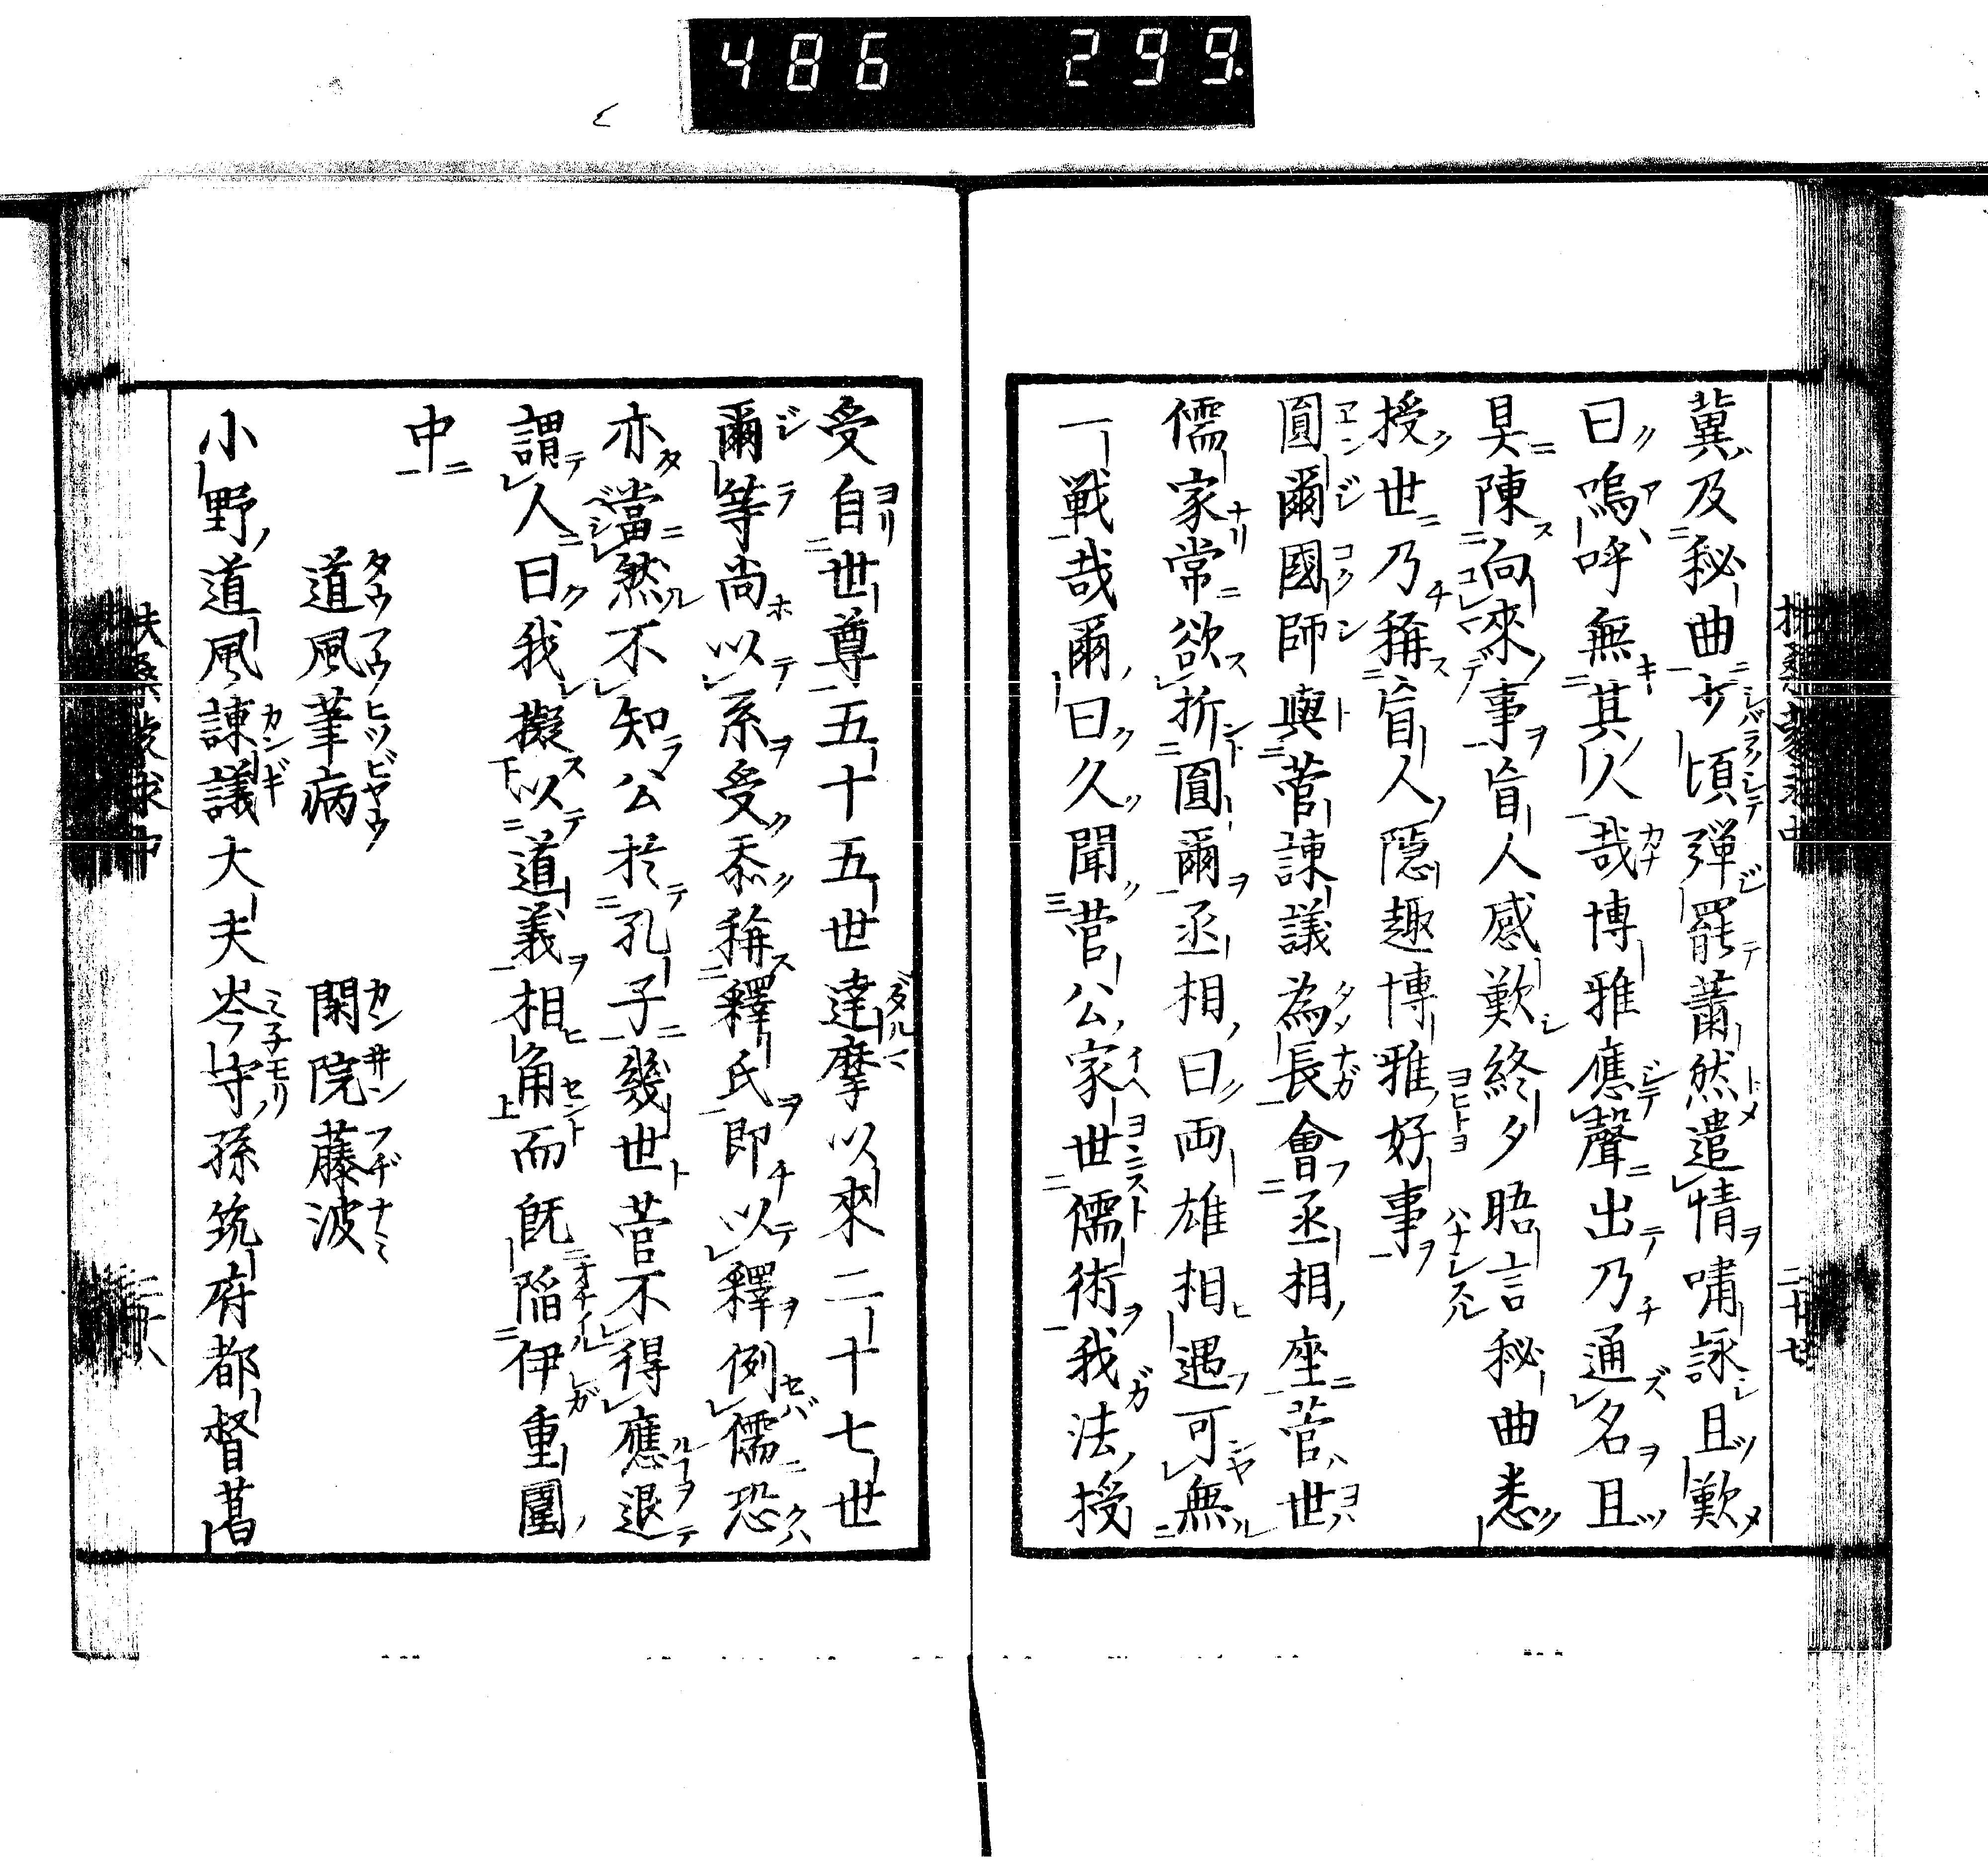 486 299
冀及秘曲少頃彈罷蕭然遣情嘯詠且歎
曰嗚呼無其人哉博雅應聲出乃通名且
具陳向來事盲人感歎終夕晤言秘曲悉
授世乃稱盲人隱趣博雅好事
圓爾國師與菅諌議為長會丞相座菅世
儒家常欲折圓爾丞相曰両雄相遇可無
一戦哉爾曰久聞菅公家世儒術我法授
受自世尊五十五世達摩以來二十七世
爾等尚以系受忝稱釋氏即以釋例儒恐
亦當然不知公於孔子幾世菅不得應退
謂人曰我擬以道義相角而既陥伊重圍
中
道風筆病 閑院藤波
小野道風諌議大夫岑守孫筑府都督葛